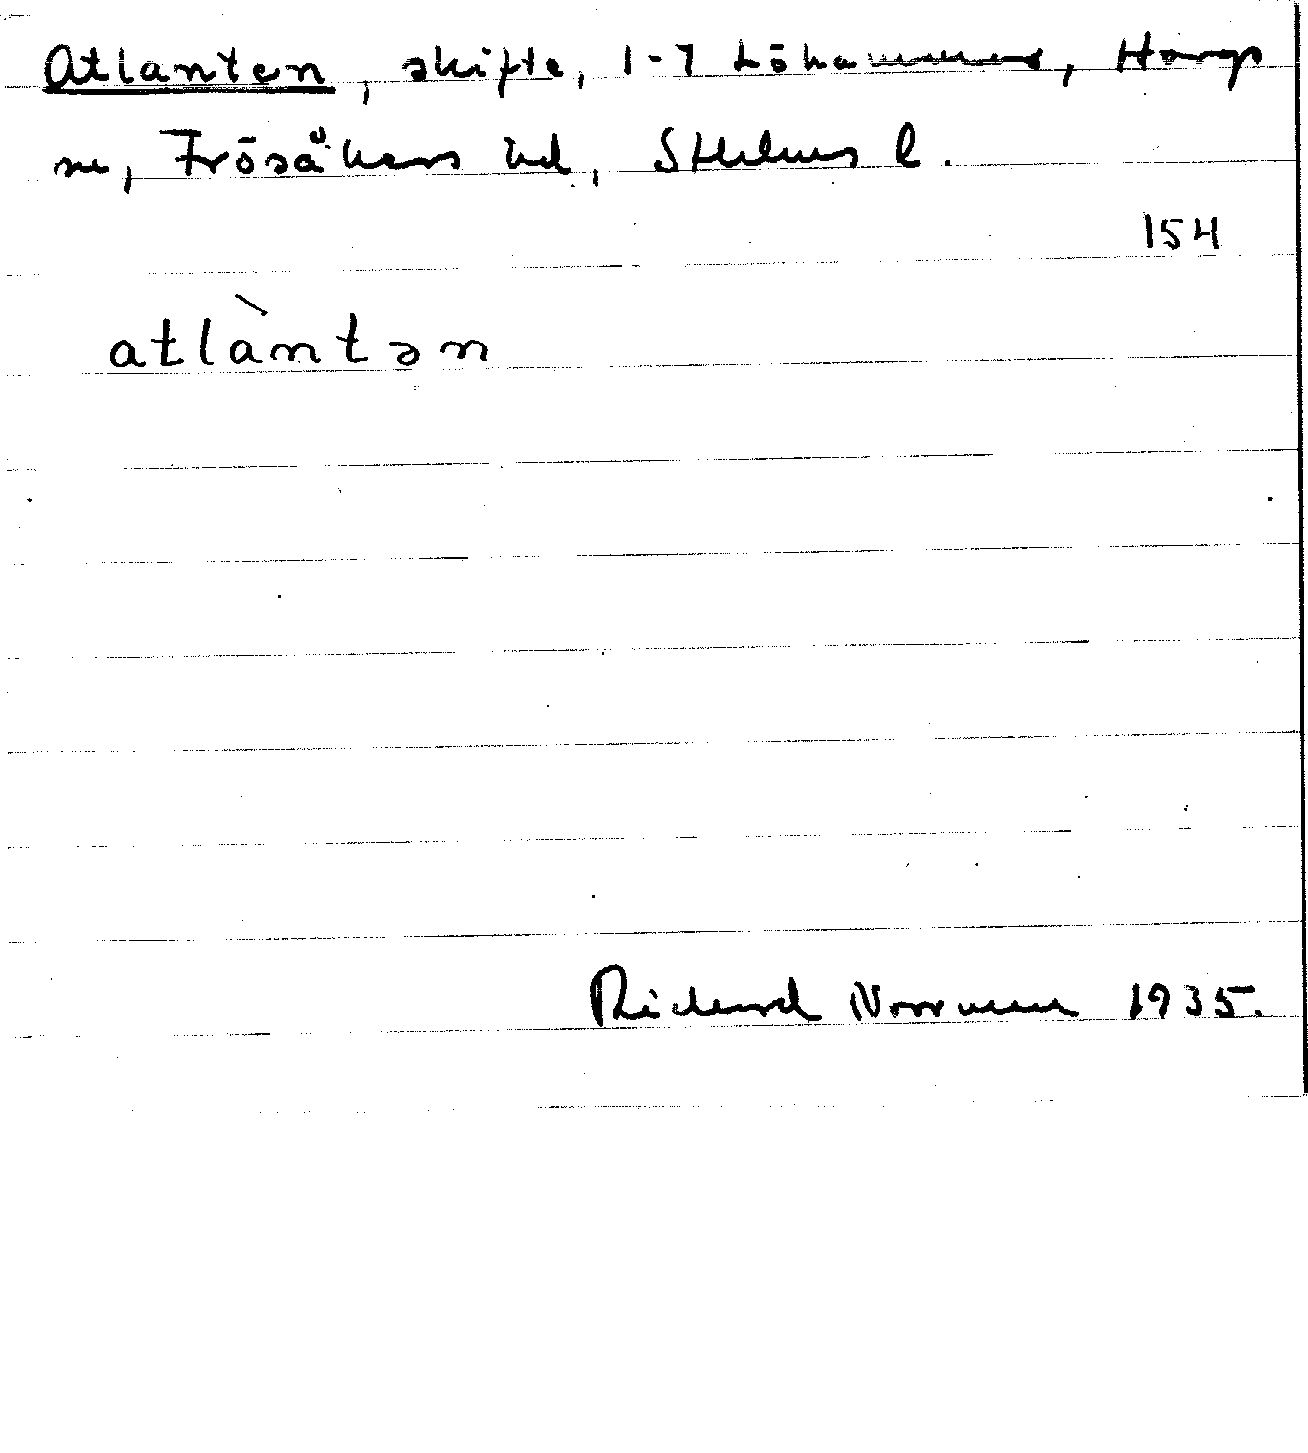 Atlanten, skifte, 1-7 Löhammar, Hargs
sn, Frösåkers hd, Sthlms l.
154
atlàntən
Richard Norrman 1935.